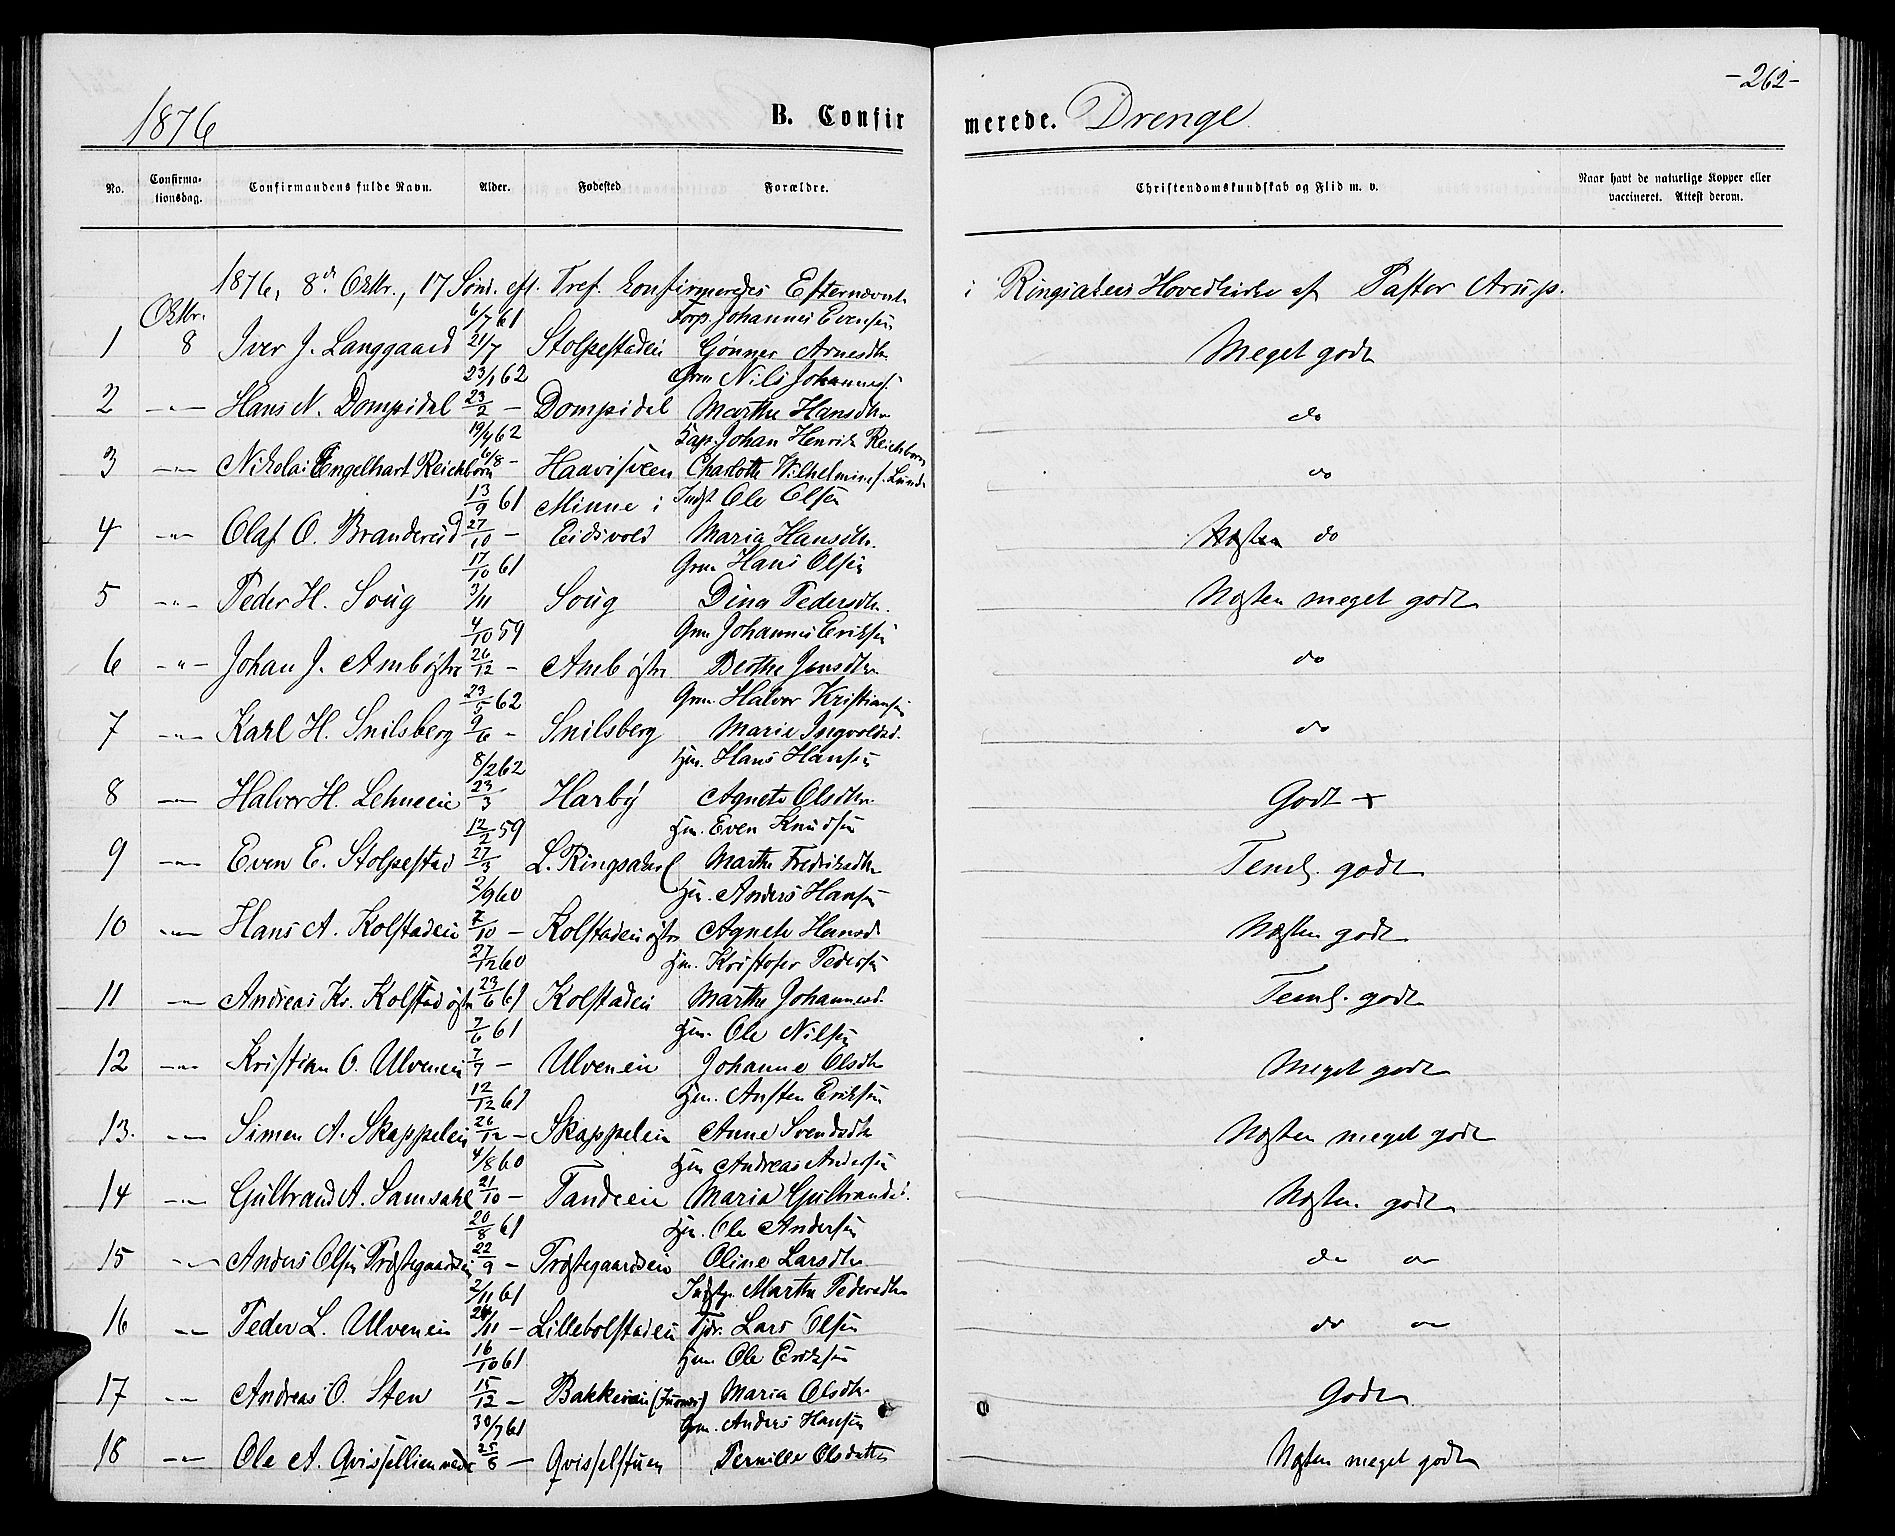 -262-
1876 B. Confirmerede. Drenge
No. Confirmationsdag. Confirmandens fulde Navn. Alder. Fødested Forældre. Christendomskundskab og Flid m. v. Naar havt de naturlige Kopper eller vaccineret. Attest derom.
1876, 8de Oktbr., 17 Sønd. eft. Tref. konfirmeredes Efternævnte i Ringsakers Hovedkirke af Pastor Arup.
Oktbr. 6/7 61 Forp. Johannes Evensen
1 8 Iver J. Langgaard 21/7 Stolpestadeie Gønner Arnesdtr Meget godt
23/1 62 Grm Nils Johannes.
2 -"- Hans N. Dompidal 23/2 - Dompidal Marthe Hansdtr do
19/4 62 Kap. Johan Henrik Reichborn
3 -"- Nikolai Engelhart Reichborn 6/8 - Haavisveen Charlotte Wilhelmine f. Lund do
13/9 61 Minne i Indst Ole Olsen
4 -"- Olaf O. Brandereid 27/10 - Eidsvold Maria Hansdtr. Næsten do
17/10 61 Grm Hans Olsen
5 -"- Peder H. Soug 3/11 Soug Dina Pedersdtr. Næsten meget godt
4/10 59 Grm Johannes Eriksen
6 -"- Johan J. Amb østre 26/12 - Amb østre Berthe Jensdtr do
23/5 62 Grm. Halvor Kristiansen
7 -"- Karl H. Snilsberg 9/6 - Snilsberg Marie Ingvoldsd. do
8/2 62 Hm. Hans Hansen
8 -"- Halvor H. Lehneeie 23/3 Harby Agnete Olsdtr. Godt +
12/2 59 Hm. Even Knudsen
9 -"- Even E. Stolpestad 27/3 L. Ringsaker Marthe Fredriksdtr Teml. godt
2/9 60 Hm. Anders Hansen
10 -"- Hans A. Kolstadeie 7/10 - Kolstadeie østre Agnete Hansd. Næsten godt
27/12 60 Hm. Kristofer Pedersen
11 -"- Andreas Kr. Kolstad østre 23/6 61 Kolstadeie Marthe Johannesd. Teml. godt
2/6 61 Hm. Ole Nilsen
12 -"- Kristian O. Ulveneie 7/7 - Ulveneie Johanne Olsdtr Meget godt
12/12 61 Hm. Austen Eriksen
13. -"- Simen A. Skappeleie 26/12 - Skappeleie Anne Svendsdtr Næsten meget godt
4/8 60 Hm Andreas Andersen
14 -"- Gulbrand A. Samsahl 21/10 - Tandeeie Maria Gulbrandsd. Næsten godt
20/8 61 Hm. Ole Andersen
15 -"- Anders Olsen Prestegaardseie 22/9 - Prestegaardseie Oline Larsdtr do do
2/11 61 Indstp. Marthe Pedersdtr
16 -"- Peder L. Ulveneie 24/11 - Lillebolstadeie Tjdr. Lars Olsen do do
16/10 61 Hm. Ole Eriksen
17 -"- Andreas O. Sten 15/12 - Bakkeneie (Furnes) Maria Olsdtr. Godt
30/7 61 Grm. Anders Hansen
18 -"- Ole A. Qvissellien nedre 25/8 - Qvisselstuen Pernille Olsdatter Næsten meget godt